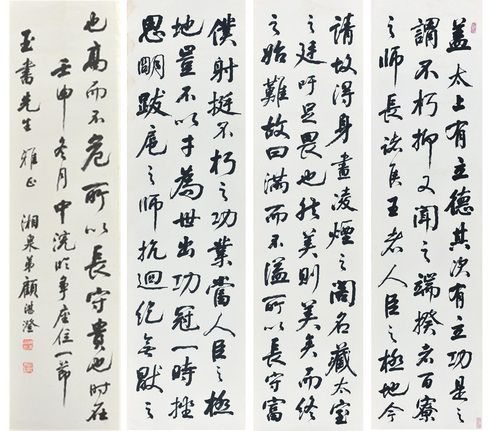 蓋太上有立德其次有立功是之
謂不朽抑又聞之端揆者百寮
之師長諸侯王者人臣之極地今
請故得身畫凌煙之閣名藏太室
之廷吁足畏也然美則美矣而終
之始難故曰滿而不溢所以長守富
僕射挺不朽之功業當人臣之極
地豈不以才為世出功冠一時挫
思明跋扈之師抗迴紇無厭之
也高而不危所以長守貴也時在
壬申冬月中浣臨爭座位一節
玉書先生 雅正 湘泉弟顧澄